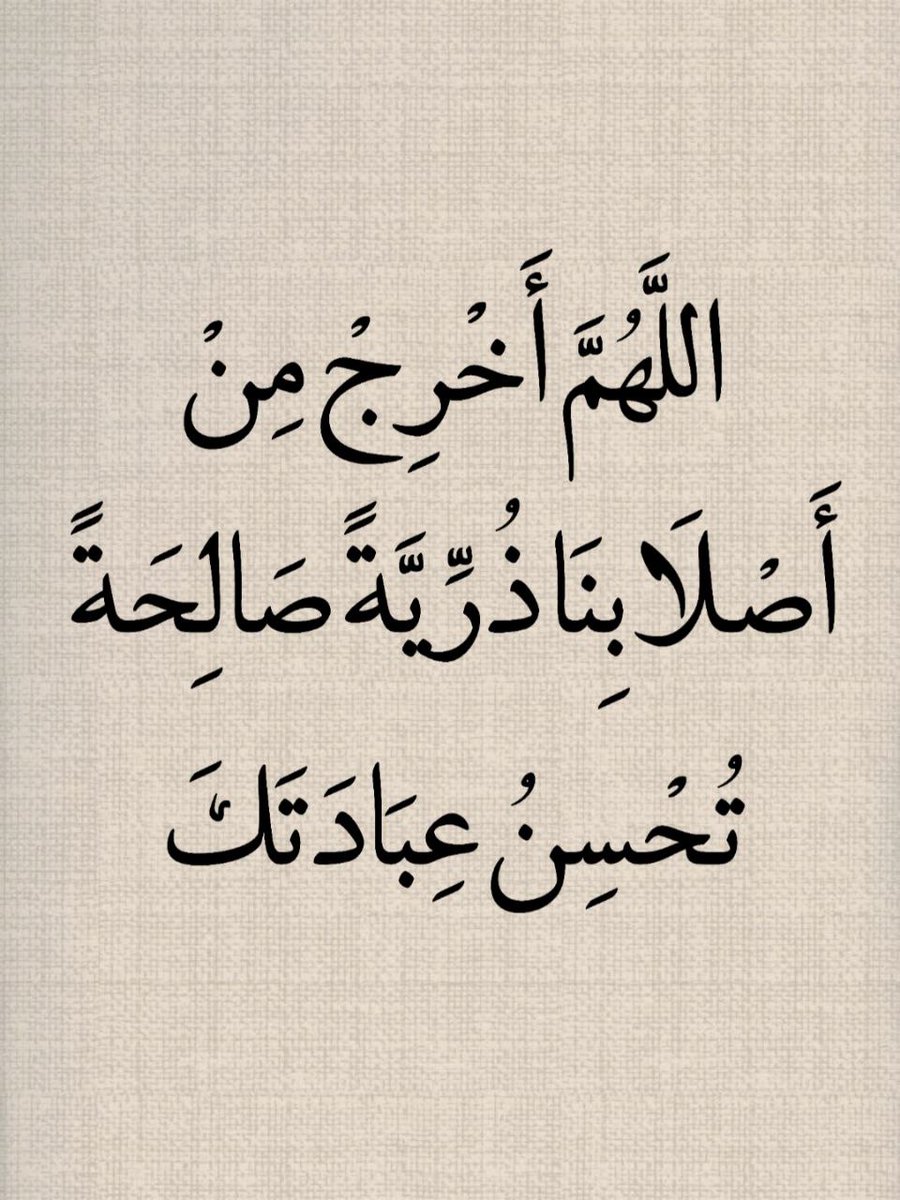 اللَّهُمَّ أَخْرِجْ مِنْ
أَصْلَابِنَا ذُرِّيَّةً صَالِحَةً
تُحْسِنُ عِبَادَتَكَ